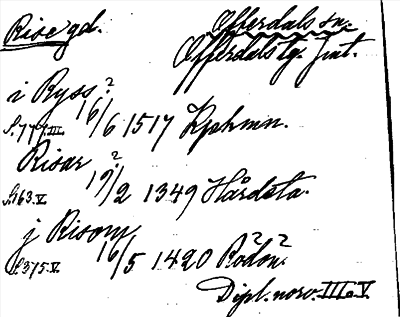 Rise gd. Offerdals sn.
Offerdals tg. Jmt.
i Ryss? 16/6 1517 Kphmn.
S. 777. III.
Risar? 19/2 1349 Hårdsta.
S. 163. V.
j Risom, 16/5 1420 Rödön?
S. 375. V.
Dipl. norv. III o. V.